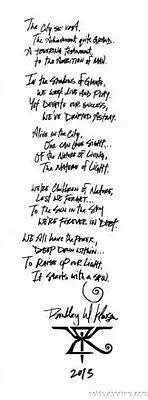 The City so vast,
The Achievement quite grand...
A towering testament,
to the Ambition of Man.
In the Shadows of Giants,
we work, live and play.
Yet despite our success,
we've drifted astray.
Alive in the City,
One can lose sight...
Of the Nature of Living,
The Nature of Light.
We're Children of Nature,
Lest we forget...
To the Sun in the Sky
We're forever in Debt.
We All have the Power,
Deep down within...
To raise up our Light,
It starts with a spin.
2015